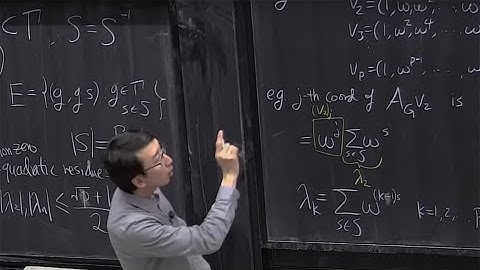 ⊂ Γ, S = S⁻¹
E = {(g, gs) : g ∈ Γ
s ∈ S}
|S| =
nonzero
quadratic residue
|λ₂|, |λₙ| ≤ (√p + 1)/2
v₂ = (1, ω,
v₃ = (1, ω², ω⁴, ...,
⋮
v_p = (1, ω^{p-1}, ...,
eg j-th coord of A_G v₂ is
(v₂)_j
= ω^j ∑_{s∈S} ω^s
λ₂
λ_k = ∑_{s∈S} ω^{(k-1)s} k=1,2,..